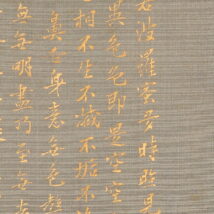 若波羅蜜多時照見
異色色即是空空
相不生不滅不垢不
鼻舌身意無色聲
無無明盡乃至無老